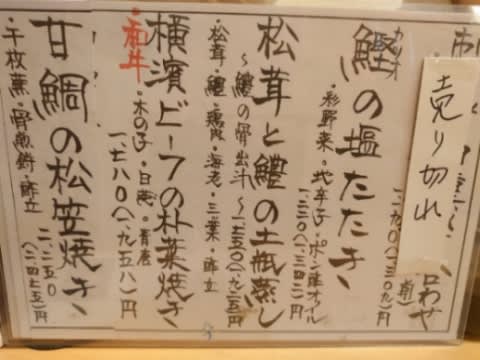 売り切れ
合わせ
カツオ
鰹の塩たたき
・彩野菜・花辛子・ポン酢オイル
松茸と鱧の土瓶蒸し
〜鱧の骨出汁〜 一、七五〇(一、九二五)円
・松茸・鱧・鶏肉・海老・三葉・酢立
横濱ビーフの朴葉焼き
・和牛
・木の子・白葱・青唐
一、七八〇(一、九五八)円
甘鯛の松笠焼き
二、二五〇(二、四七五)円
・千枚蕪・骨煎餅・酢立